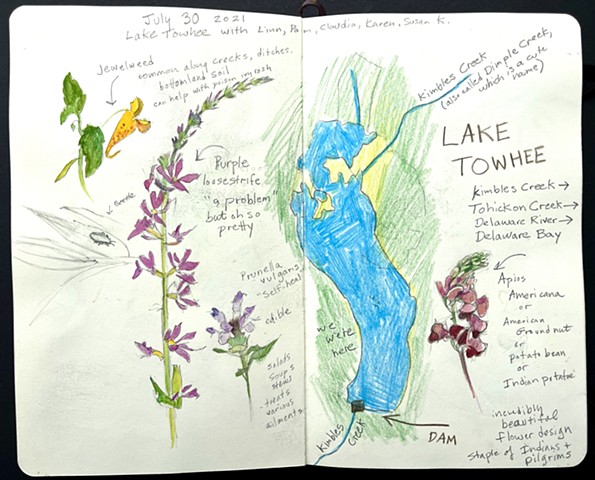 July 30 2021
Lake Towhee with Linn, Pam, Claudia, Karen, Susan K.
Jewelweed
common along creeks, ditches,
bottomland soil
can help with poison ivy rash
Purple
loosestrife
"a problem"
but oh so
pretty
Beetle
Prunella
vulgaris
"Self-heal"
edible
salads
soups
stews
treats
various
ailments
Kimbles Creek
(also called Dimple Creek,
which is a cute
name)
LAKE
TOWHEE
Kimbles Creek →
Tohickon Creek →
Delaware River →
Delaware Bay
Apios
Americana
or
American
Ground nut
or
potato bean
or
Indian potatoe
incredibly
beautiful
flower design
staple of Indians +
pilgrims
we were
here
Kimbles
Creek
DAM